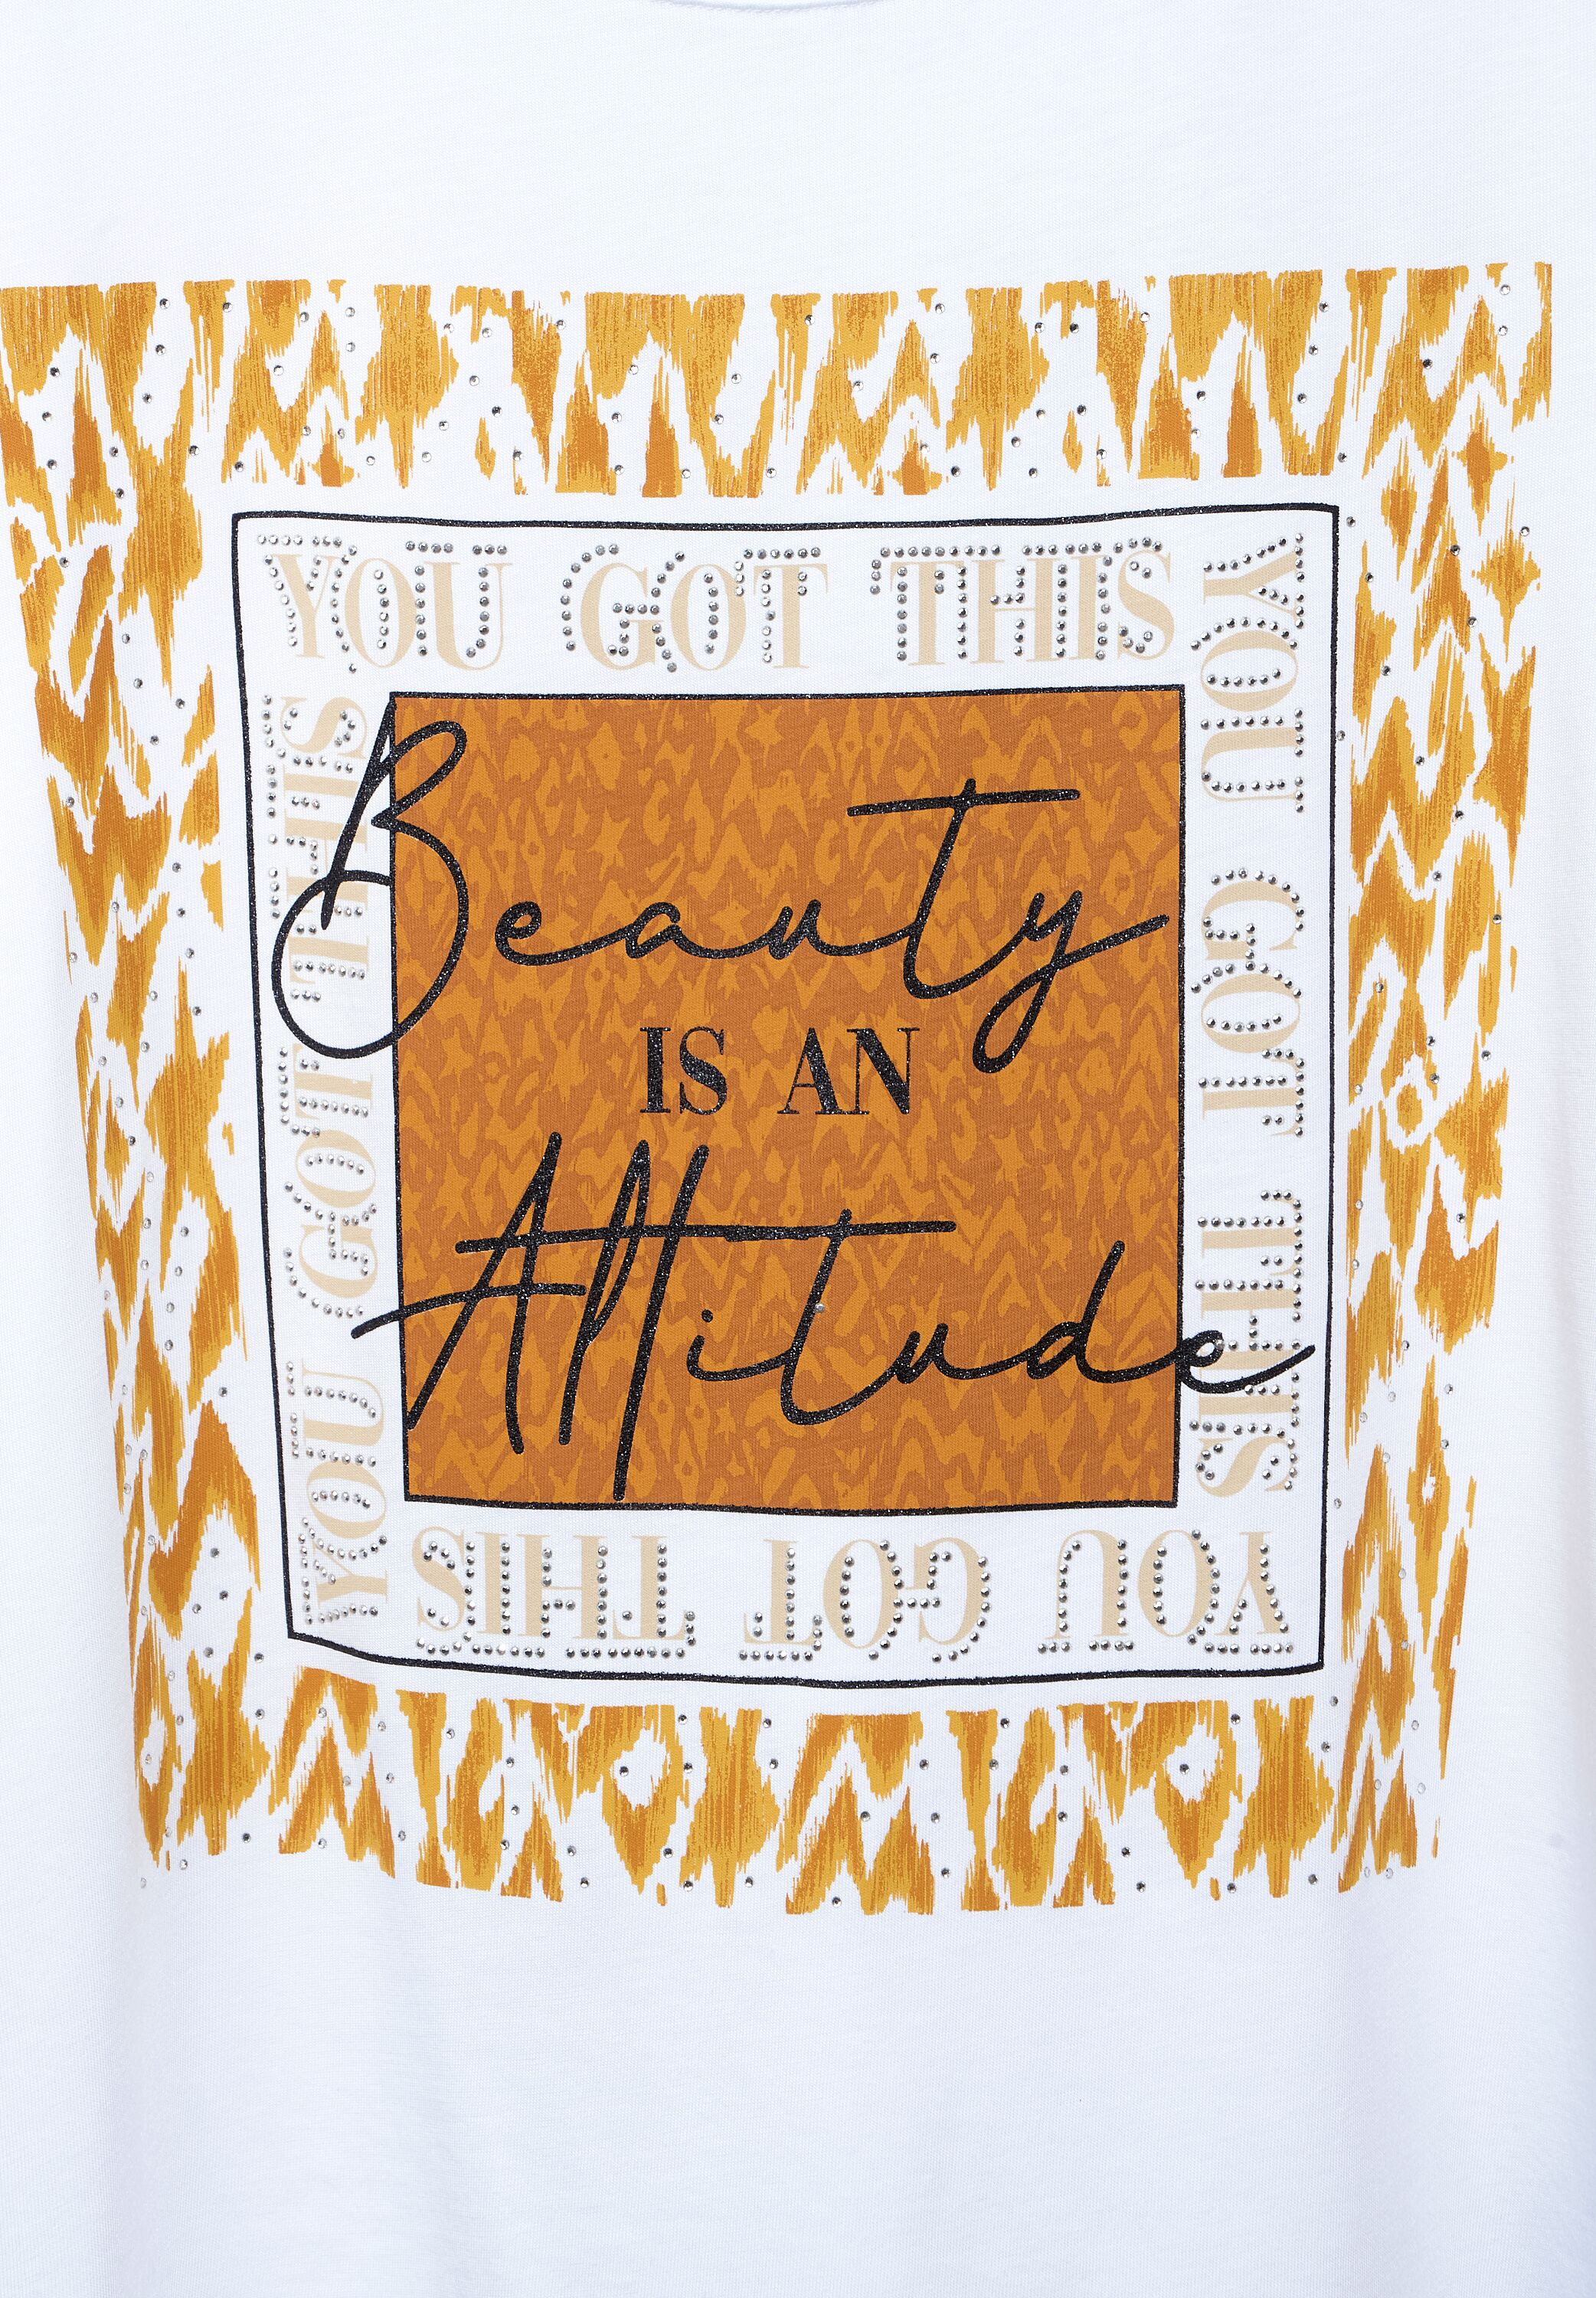 YOU GOT THIS
YOU GOT THIS
YOU GOT THIS
YOU GOT THIS
Beauty
IS AN
Attitude